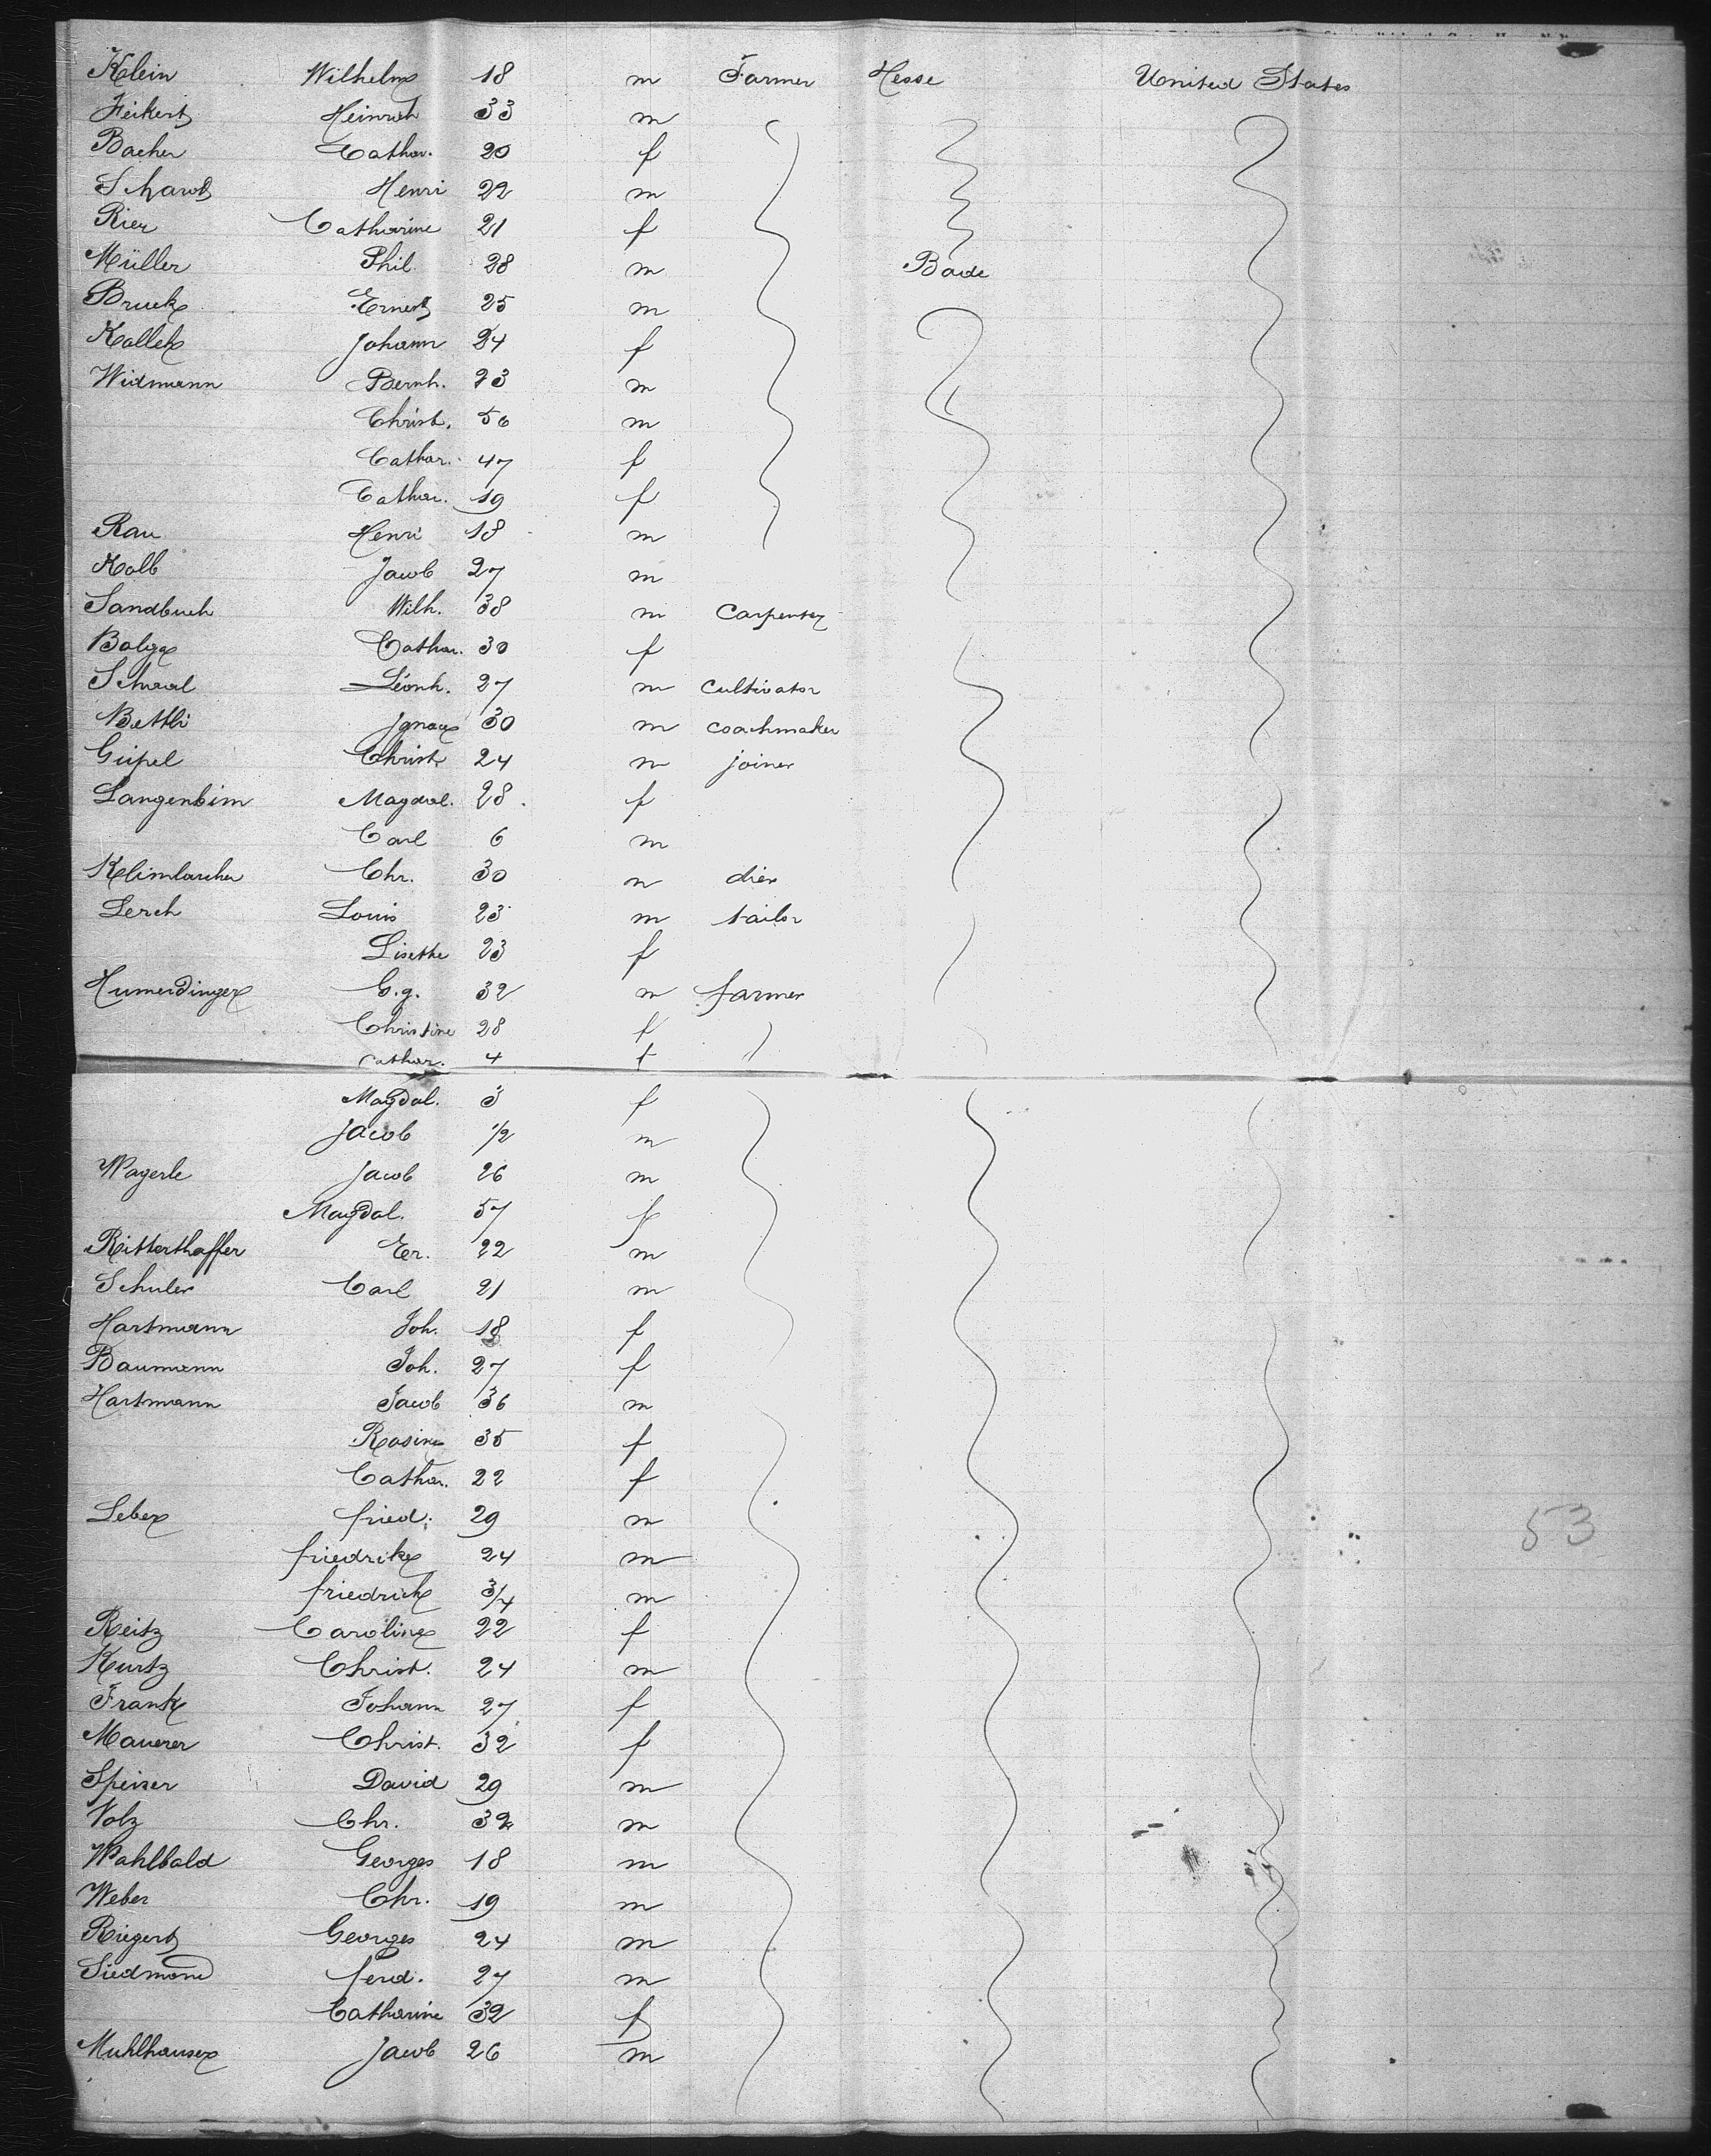 Klein Wilhelm 18 m Farmer Hesse United States
Feikert Heinrich 33 m
Bacher Cathar. 20 f
Henri 22 m
Rier Catharine 21 f
Müller Phil. 28 m Bade
Bruck Ernest 25 m
Johann 24 f
Widmann Bernh. 23 m
Christ. 56 m
Cathar. 47 f
Cathar. 19 f
Rau Henri 18 m
Kolb Jacob 27 m
Sandbuch Wilh. 38 m Carpenter
Cathar. 30 f
Schaal Léonh. 27 m cultivator
Bettli Ignace 30 m coachmaker
Geipel Christ. 24 m joiner
Langenbim Magdal. 28. f
Carl 6 m
Chr. 30 m dier
Lerch Louis 23 m tailor
Lisethe 23 f
Humerdinger G.g. 32 m farmer
Christine 28 f
Cathar. 4 f
Magdal. 3 f
Jacob 1/2 m
Wagerle Jacob 26 m
Magdal. 57 f
Ritterthaffer Er. 22 m
Schuler Carl 21 m
Hartmann Joh. 18 f
Baumann Joh. 27 f
Hartmann Jacob 36 m
Rosine 35 f
Cathar. 22 f
Leber fried. 29 m
friedrike 24 m
friedrich 3/4 m
Reitz Caroline 22 f
Kurtz Christ. 24 m
Frank Johann 27 f
Maurer Christ. 32 f
Speiser David 29 m
Volz Chr. 32 m
Wahlbald Georges 18 m
Weber Chr. 19 m
Riegert Georges 24 m
Siedmond ferd. 27 m
Catharine 32 f
Muhlhauser Jacob 26 m
53